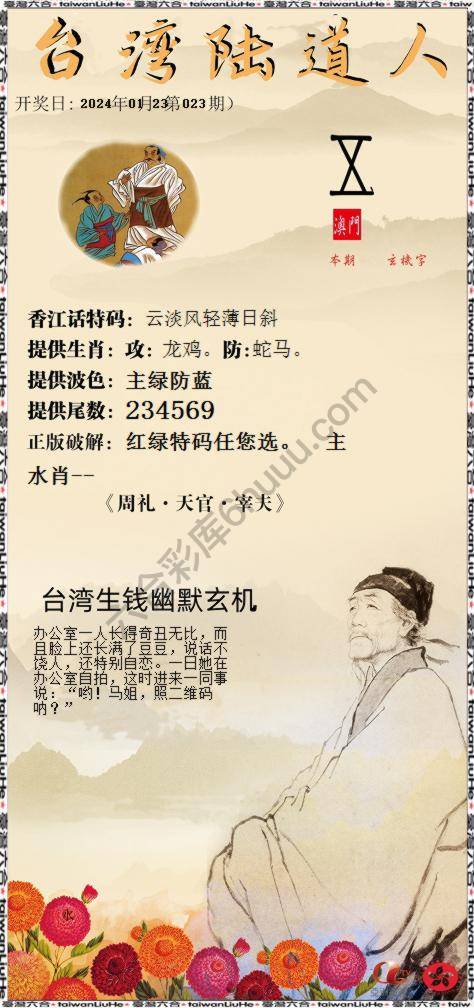 臺灣六合 taiwanLiuHe 臺灣六合 taiwanLiuHe 臺灣六合 taiwanLiuHe
台湾陆道人
开奖日：2024年01月23第023期）
澳門
本期 玄機字
香江话特码：云淡风轻薄日斜
提供生肖：攻：龙鸡。防:蛇马。
提供波色：主绿防蓝
提供尾数：234569
正版破解：红绿特码任您选。 主
水肖--
《周礼·天官·宰夫》
六合彩库6huuu.com
台湾生钱幽默玄机
办公室一人长得奇丑无比，而
且脸上还长满了豆豆，说话不
饶人，还特别自恋。一日她在
办公室自拍，这时进来一同事
说：“哟！马姐，照二维码
呐？”
臺灣六合 taiwanLiuHe 臺灣六合 taiwanLiuHe 臺灣六合 taiwanLiuHe